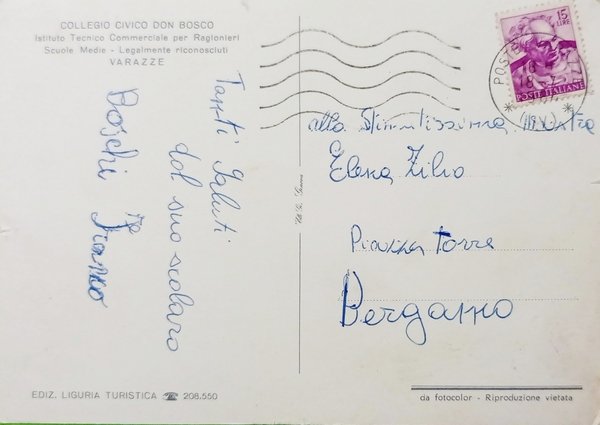 COLLEGIO CIVICO DON BOSCO
Istituto Tecnico Commerciale per Ragionieri
Scuole Medie - Legalmente riconosciuti
VARAZZE
Tanti Saluti
dal suo scolaro
Boschi Franco
15
LIRE
POSTE ITALIANE
alla Stimatissima
Elena Zilio
Piazza Torre
Bergamo
EDIZ. LIGURIA TURISTICA ☎ 208.550
da fotocolor - Riproduzione vietata